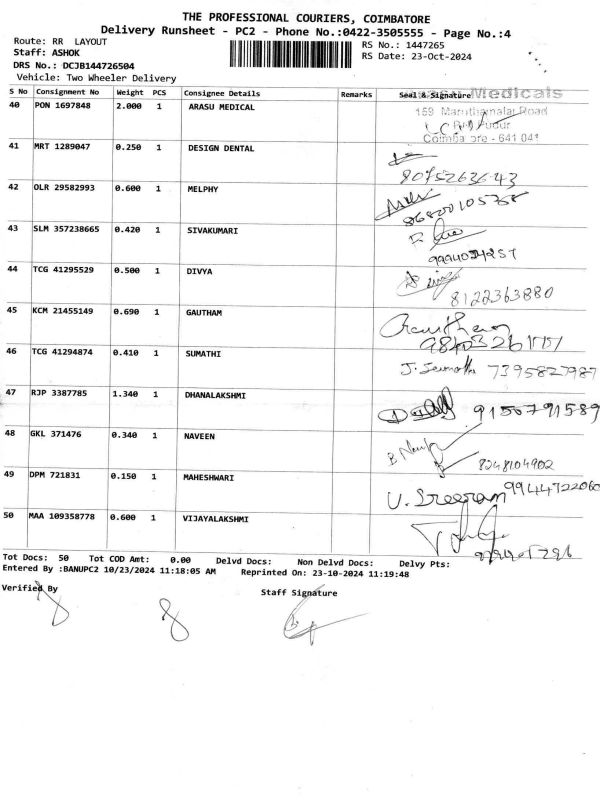 THE PROFESSIONAL COURIERS, COIMBATORE
Delivery Runsheet - PC2 - Phone No.:0422-3505555 - Page No.:4
Route: RR LAYOUT RS No.: 1447265
Staff: ASHOK RS Date: 23-Oct-2024
DRS No.: DCJB144726504
Vehicle: Two Wheeler Delivery
S No Consignment No Weight PCS Consignee Details Remarks Seal & Signature
40 PON 1697848 2.000 1 ARASU MEDICAL
Medicals
159 Maruthamalai Road
Coimbatore - 641 041
41 MRT 1289047 0.250 1 DESIGN DENTAL
8075263643
42 OLR 29582993 0.600 1 MELPHY
43 SLM 357238665 0.420 1 SIVAKUMARI
44 TCG 41295529 0.500 1 DIVYA
8122363880
45 KCM 21455149 0.690 1 GAUTHAM
46 TCG 41294874 0.410 1 SUMATHI
J. Sumathi 7395827987
47 RJP 3387785 1.340 1 DHANALAKSHMI
9150791589
48 GKL 371476 0.340 1 NAVEEN
8248104902
49 DPM 721831 0.150 1 MAHESHWARI
9944722060
V. Sreeram
50 MAA 109358778 0.600 1 VIJAYALAKSHMI
Tot Docs: 50 Tot COD Amt: 0.00 Delvd Docs: Non Delvd Docs: Delvy Pts:
Entered By :BANUPC2 10/23/2024 11:18:05 AM Reprinted On: 23-10-2024 11:19:48
Verified By Staff Signature